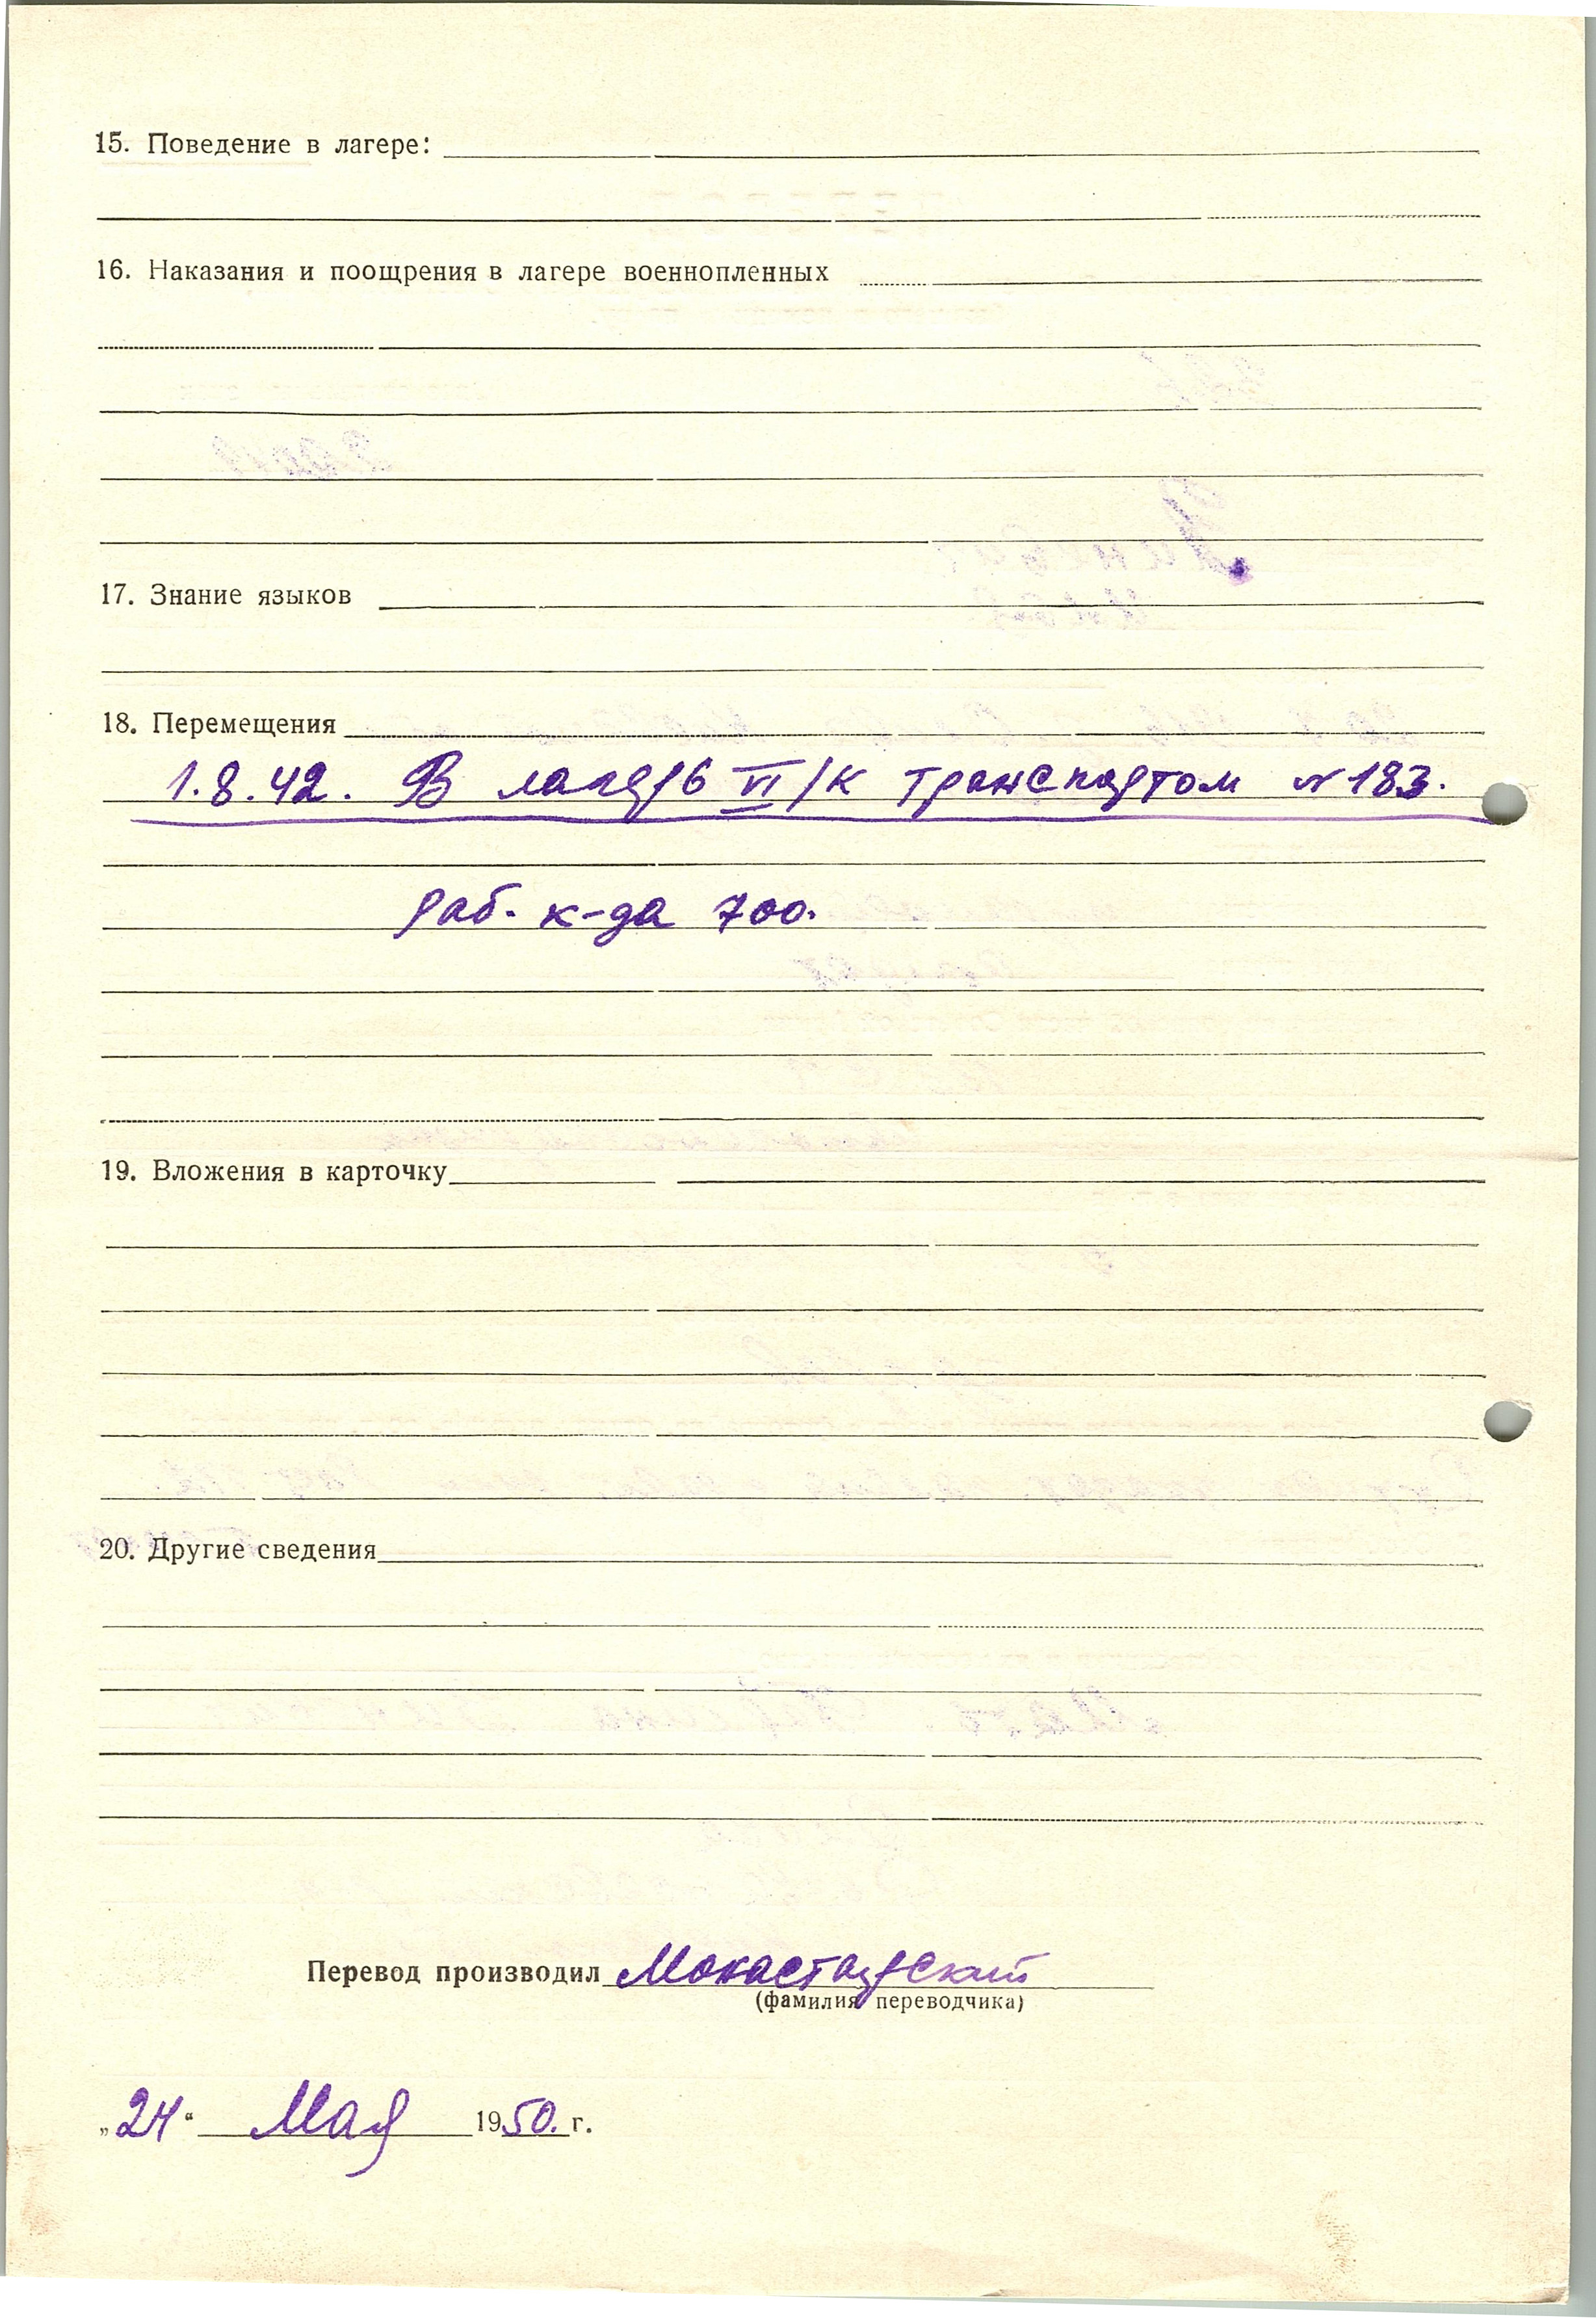 15. Поведение в лагере:
16. Наказания и поощрения в лагере военнопленных
17. Знание языков
18. Перемещения
1.8.42. В лагерь VI/к транспортом № 183.
раб. к-да 700.
19. Вложения в карточку
20. Другие сведения
Перевод производил Монастырский
(фамилия переводчика)
„24“ Мая 1950. г.